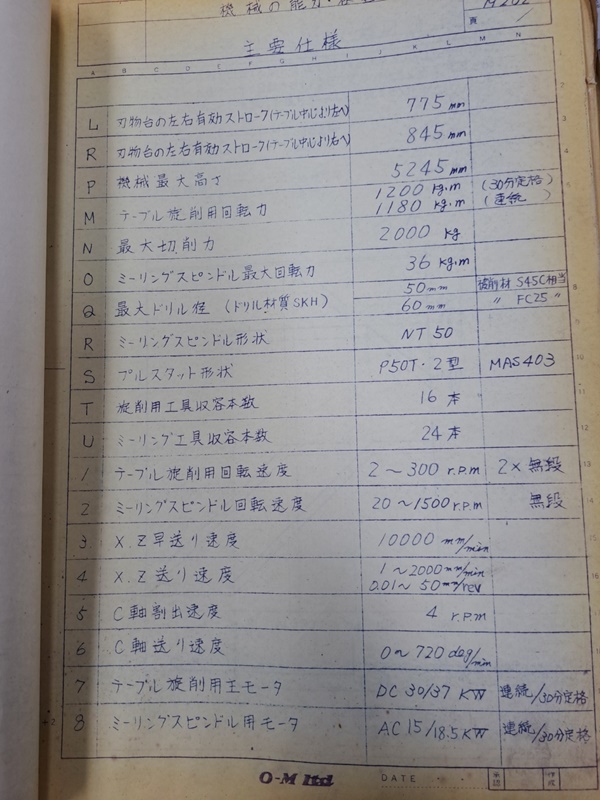 機械の能力
M202
頁 1
主要仕様
A B C D E F G H I J K L M N
L 刃物台の左右有効ストローク(テーブル中心より左へ) 775 mm
R 刃物台の左右有効ストローク(テーブル中心より右へ) 845 mm
P 機械最大高さ 5245 mm
M テーブル旋削用回転力 1200 kg.m (30分定格)
1180 kg.m (連続)
N 最大切削力 2000 kg
O ミーリングスピンドル最大回転力 36 kg.m
Q 最大ドリル径 (ドリル材質SKH) 50 mm 被削材 S45C相当
60 mm 〃 FC25 〃
R ミーリングスピンドル形状 NT 50
S プルスタット形状 P50T・2型 MAS403
T 旋削用工具収容本数 16 本
U ミーリング工具収容本数 24 本
1 テーブル旋削用回転速度 2～300 r.p.m 2× 無段
2 ミーリングスピンドル回転速度 20～1500 r.p.m 無段
3 X.Z早送り速度 10000 mm/min
4 X.Z送り速度 1～2000 mm/min
0.01～50 mm/rev
5 C軸割出速度 4 r.p.m
6 C軸送り速度 0～720 deg/min
7 テーブル旋削用主モータ DC 30/37 KW 連続/30分定格
8 ミーリングスピンドル用モータ AC 15/18.5 KW 連続/30分定格
O-M ltd
DATE ・ ・ 承認 作成